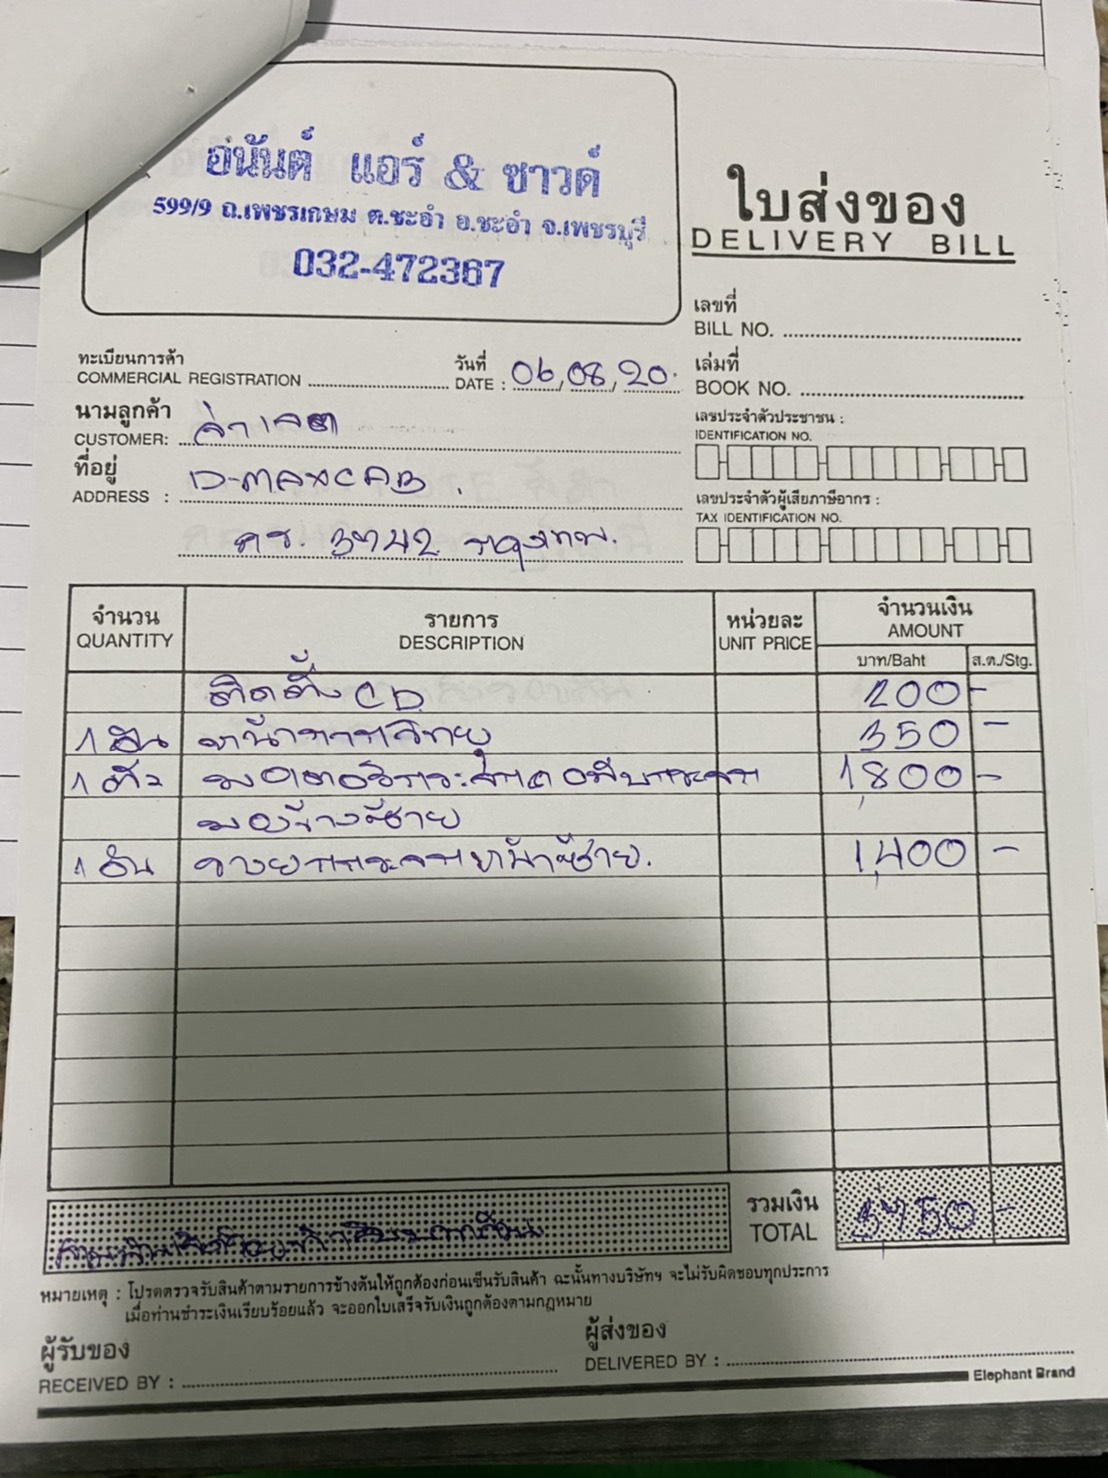 อนันต์ แอร์ & ซาวด์
599/9 ถ.เพชรเกษม ต.ชะอำ อ.ชะอำ จ.เพชรบุรี
032-472367
ใบส่งของ
DELIVERY BILL
เลขที่
BILL NO.
ทะเบียนการค้า
COMMERCIAL REGISTRATION
วันที่
DATE : 06,08,20.
เล่มที่
BOOK NO.
นามลูกค้า
CUSTOMER: จ่าเจต
เลขประจำตัวประชาชน :
IDENTIFICATION NO.
ที่อยู่
ADDRESS : D-MAXCAB.
เลขประจำตัวผู้เสียภาษีอากร :
TAX IDENTIFICATION NO.
3742 กรุงเทพ.
จำนวน
QUANTITY
รายการ
DESCRIPTION
หน่วยละ
UNIT PRICE
จำนวนเงิน
AMOUNT
บาท/Baht
ส.ต./Stg.
ติดตั้ง CD 200 -
1 อัน หน้ากากวิทยุ 350 -
1 ตัว 1,800 -
1 อัน รางยกกระจกหน้าซ้าย. 1,400 -
รวมเงิน
TOTAL 3,750 -
หมายเหตุ : โปรดตรวจรับสินค้าตามรายการข้างต้นให้ถูกต้องก่อนเซ็นรับสินค้า ฉะนั้นทางบริษัทฯ จะไม่รับผิดชอบทุกประการ
เมื่อท่านชำระเงินเรียบร้อยแล้ว จะออกใบเสร็จรับเงินถูกต้องตามกฎหมาย
ผู้รับของ
RECEIVED BY :
ผู้ส่งของ
DELIVERED BY :
Elephant Brand